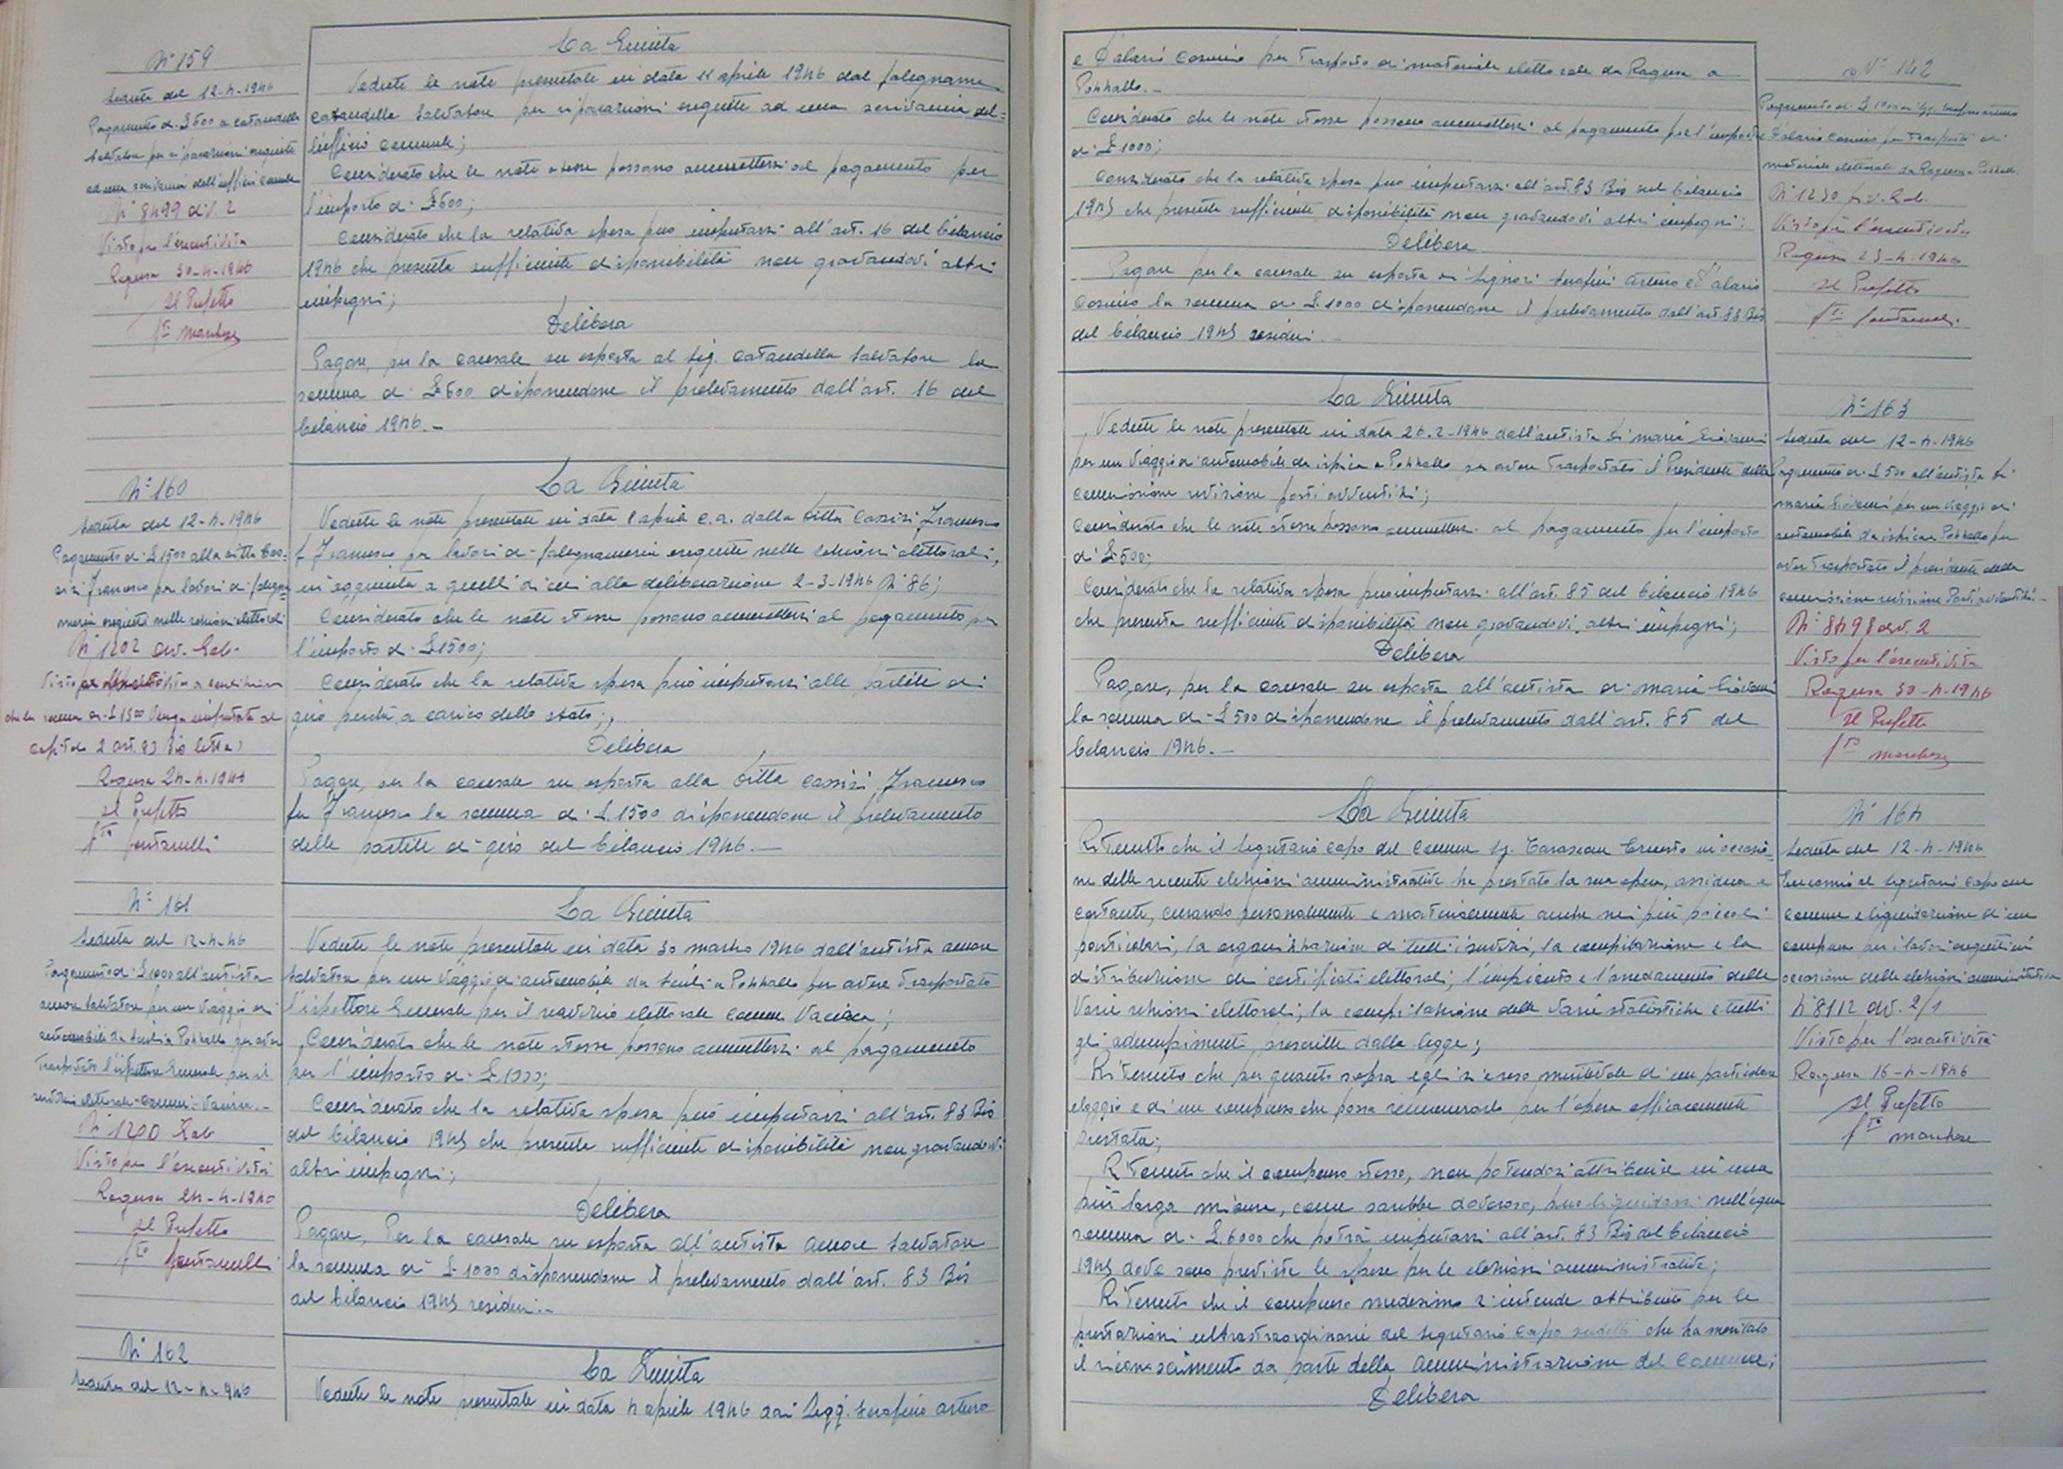 N° 159
Seduta del 12-4-1946
Pagamento di £ 600 a Cataudella
Salvatore per riparazioni eseguite
ad una scrivania dell'ufficio comunale
N° 8499 div. 2
Visto per l'esecutività
Ragusa 30-4-1946
Il Prefetto
f.to Marchese
La Giunta
Vedute le note presentate in data 11 aprile 1946 dal falegname
Cataudella Salvatore per riparazioni eseguite ad una scrivania del-
l'ufficio comunale;
Considerato che le note stesse possono ammettersi al pagamento per
l'importo di £ 600;
Considerato che la relativa spesa può imputarsi all'art. 16 del bilancio
1946 che presenta sufficiente disponibilità non gravandovi altri
impegni;
Delibera
Pagare, per la causale su esposta al Sig. Cataudella Salvatore la
somma di £ 600 disponendone il prelevamento dall'art. 16 del
bilancio 1946.-
N° 160
Seduta del 12-4-1946
Pagamento di £ 1500 alla ditta
Francesco per lavori di
eseguiti nelle sezioni elettorali
N° 1202 div. Gab.
Visto per a condizione
che la somma di £ 1500 venga imputata al
capitolo 2 art. 83 bis
Ragusa 24-4-1946
Il Prefetto
f.to Fontanelli
La Giunta
Vedute le note presentate in data 8 aprile c.a. dalla ditta Francesco
f. Francesco per lavori di falegnameria eseguite nelle sezioni elettorali,
in aggiunta a quelli di cui alla deliberazione 2-3-1946 N° 86;
Considerato che le note stesse possono ammettersi al pagamento per
l'importo di £ 1500;
Considerato che la relativa spesa può imputarsi alle partite di
giro perché a carico dello stato;
Delibera
Pagare, per la causale su esposta alla ditta Francesco
fu Francesco la somma di £ 1500 disponendone il prelevamento
delle partite di giro del bilancio 1946.-
N° 161
Seduta del 12-4-46
Pagamento di £ 1000 all'autista
Amore Salvatore per un viaggio di
automobile da Scicli a Pozzallo per aver
trasportato l'ispettore Generale per il
servizio elettorale
N° 1200 Gab
Visto per l'esecutività
Ragusa 24-4-1946
Il Prefetto
f.to Fontanelli
La Giunta
Vedute le note presentate in data 30 marzo 1946 dall'autista Amore
Salvatore per un viaggio di automobile da Scicli a Pozzallo per avere trasportato
l'ispettore Generale per il servizio elettorale
Considerato che le note stesse possono ammettersi al pagamento
per l'importo di £ 1000;
Considerato che la relativa spesa può imputarsi all'art. 83 Bis
del bilancio 1945 che presenta sufficiente disponibilità non gravandovi
altri impegni;
Delibera
Pagare, Per la causale su esposta all'autista Amore Salvatore
la somma di £ 1000 disponendone il prelevamento dall'art. 83 Bis
del bilancio 1945 residui.-
N° 162
Seduta del 12-4-946
La Giunta
Vedute le note presentate in data 4 aprile 1946 dai Sigg. Serafino Arturo
e D'alario Cosimo per trasporto di materiale elettorale da Ragusa a
Pozzallo.-
Considerato che le note stesse possono ammettersi al pagamento per l'importo
di £ 1000;
Considerato che la relativa spesa può imputarsi all'art. 83 Bis del bilancio
1945 che presenta sufficiente disponibilità non gravandovi altri impegni:
Delibera
Pagare per la causale su esposta ai Signori Serafini Arturo e D'alario
Cosimo la somma di £. 1000 disponendone il prelevamento dall'art. 83 Bis
del bilancio 1945 residui.-
N° 142
Pagamento di £ 1000 ai Sigg.
D'alario Cosimo per trasporto di
materiale elettorale da Ragusa a Pozzallo
N° 1230 Gab.
Visto per l'esecutività
Ragusa 23-4-1946
Il Prefetto
f.to Fontanelli
La Giunta
Vedute le note presentate in data 26-2-1946 dall'autista Di Maria Giovanni
per un viaggio di automobile da Ispica a Pozzallo per avere trasportato il Presidente della
commissione revisione posti avventizi;
Considerato che le note stesse possono ammettersi al pagamento per l'importo
di £ 500;
Considerato che la relativa spesa può imputarsi all'art. 85 del bilancio 1946
che presenta sufficiente disponibilità non gravandovi altri impegni;
Delibera
Pagare, per la causale su esposta all'autista di Maria Giovanni
la somma di £ 500 disponendone il prelevamento dall'art. 85 del
bilancio 1946.-
N° 163
Seduta del 12-4-1946
Pagamento di £ 500 all'autista Di
Maria Giovanni per un viaggio di
automobile da Ispica a Pozzallo per
aver trasportato il presidente della
commissione revisione Posti avventizi.-
N° 8498 div. 2
Visto per l'esecutività
Ragusa 30-4-1946
Il Prefetto
f.to Marchese
La Giunta
Ritenuto che il Segretario Capo del Comune Sig. Ernesto in occasio-
ne delle recenti elezioni amministrative ha prestato la sua opera, assidua e
costante, curando personalmente e materialmente anche nei più piccoli
particolari, la organizzazione di tutti i servizi, la compilazione e la
distribuzione dei certificati elettorali; l'impianto e l'arredamento delle
varie sezioni elettorali; la compilazione delle varie statistiche e tutti
gli adempimenti prescritte dalla legge;
Ritenuto che per quanto sopra egli si è reso meritevole di un particolare
elogio e di un compenso che possa remunerarlo per l'opera efficacemente
prestata;
Ritenuto che il compenso stesso, non potendosi attribuire in una
più larga misura, come sarebbe doveroso, può liquidarsi nell'equa
somma di £. 6000 che potrà imputarsi all'art. 83 Bis del bilancio
1945 dove sono previste le spese per le elezioni amministrative;
Ritenuto che il compenso medesimo s'intende attribuito per le
prestazioni ultrastraordinarie del Segretario Capo sudetto che ha meritato
il riconoscimento da parte della Amministrazione del Comune;
Delibera
N° 164
Seduta del 12-4-1946
Encomio al Segretario Capo del
Comune e liquidazione di un
compenso per i lavori eseguiti in
occasione delle elezioni amministrative
N° 8112 div. 2/1
Visto per l'esecutività
Ragusa 16-4-1946
Il Prefetto
f.to Marchese